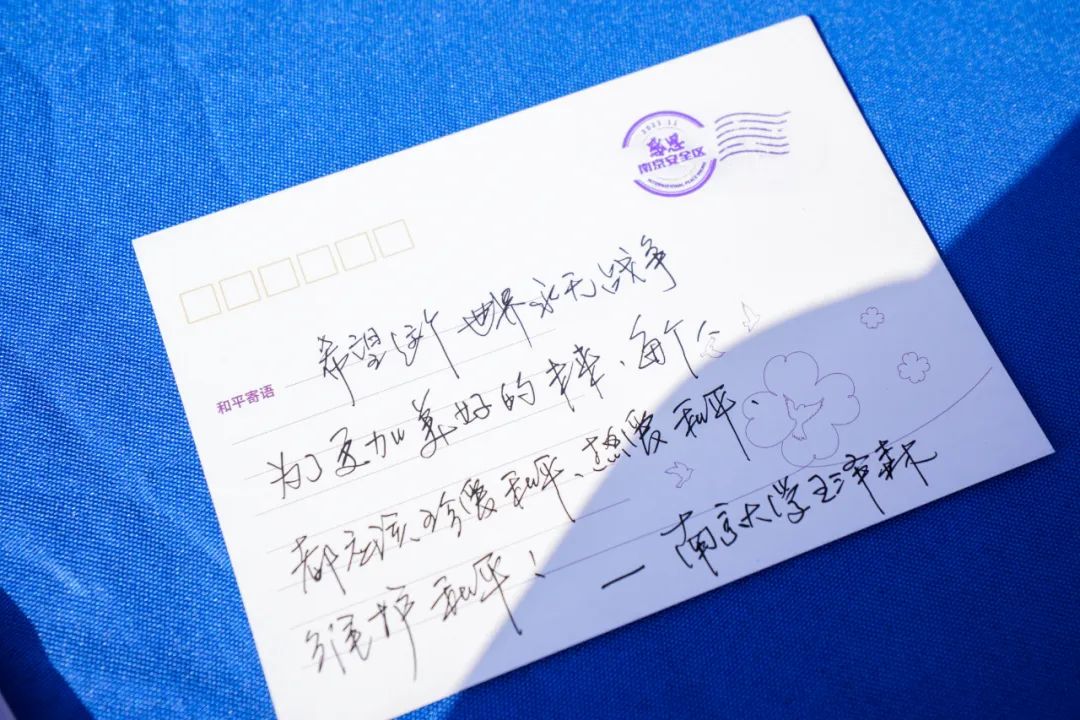 2023.11
南京安全区
INTERNATIONAL PEACE
和平寄语
希望这个世界永无战争
为了更加美好的未来、每个人
都应该珍爱和平、热爱和平、
维护和平!
—南京大学王泽森